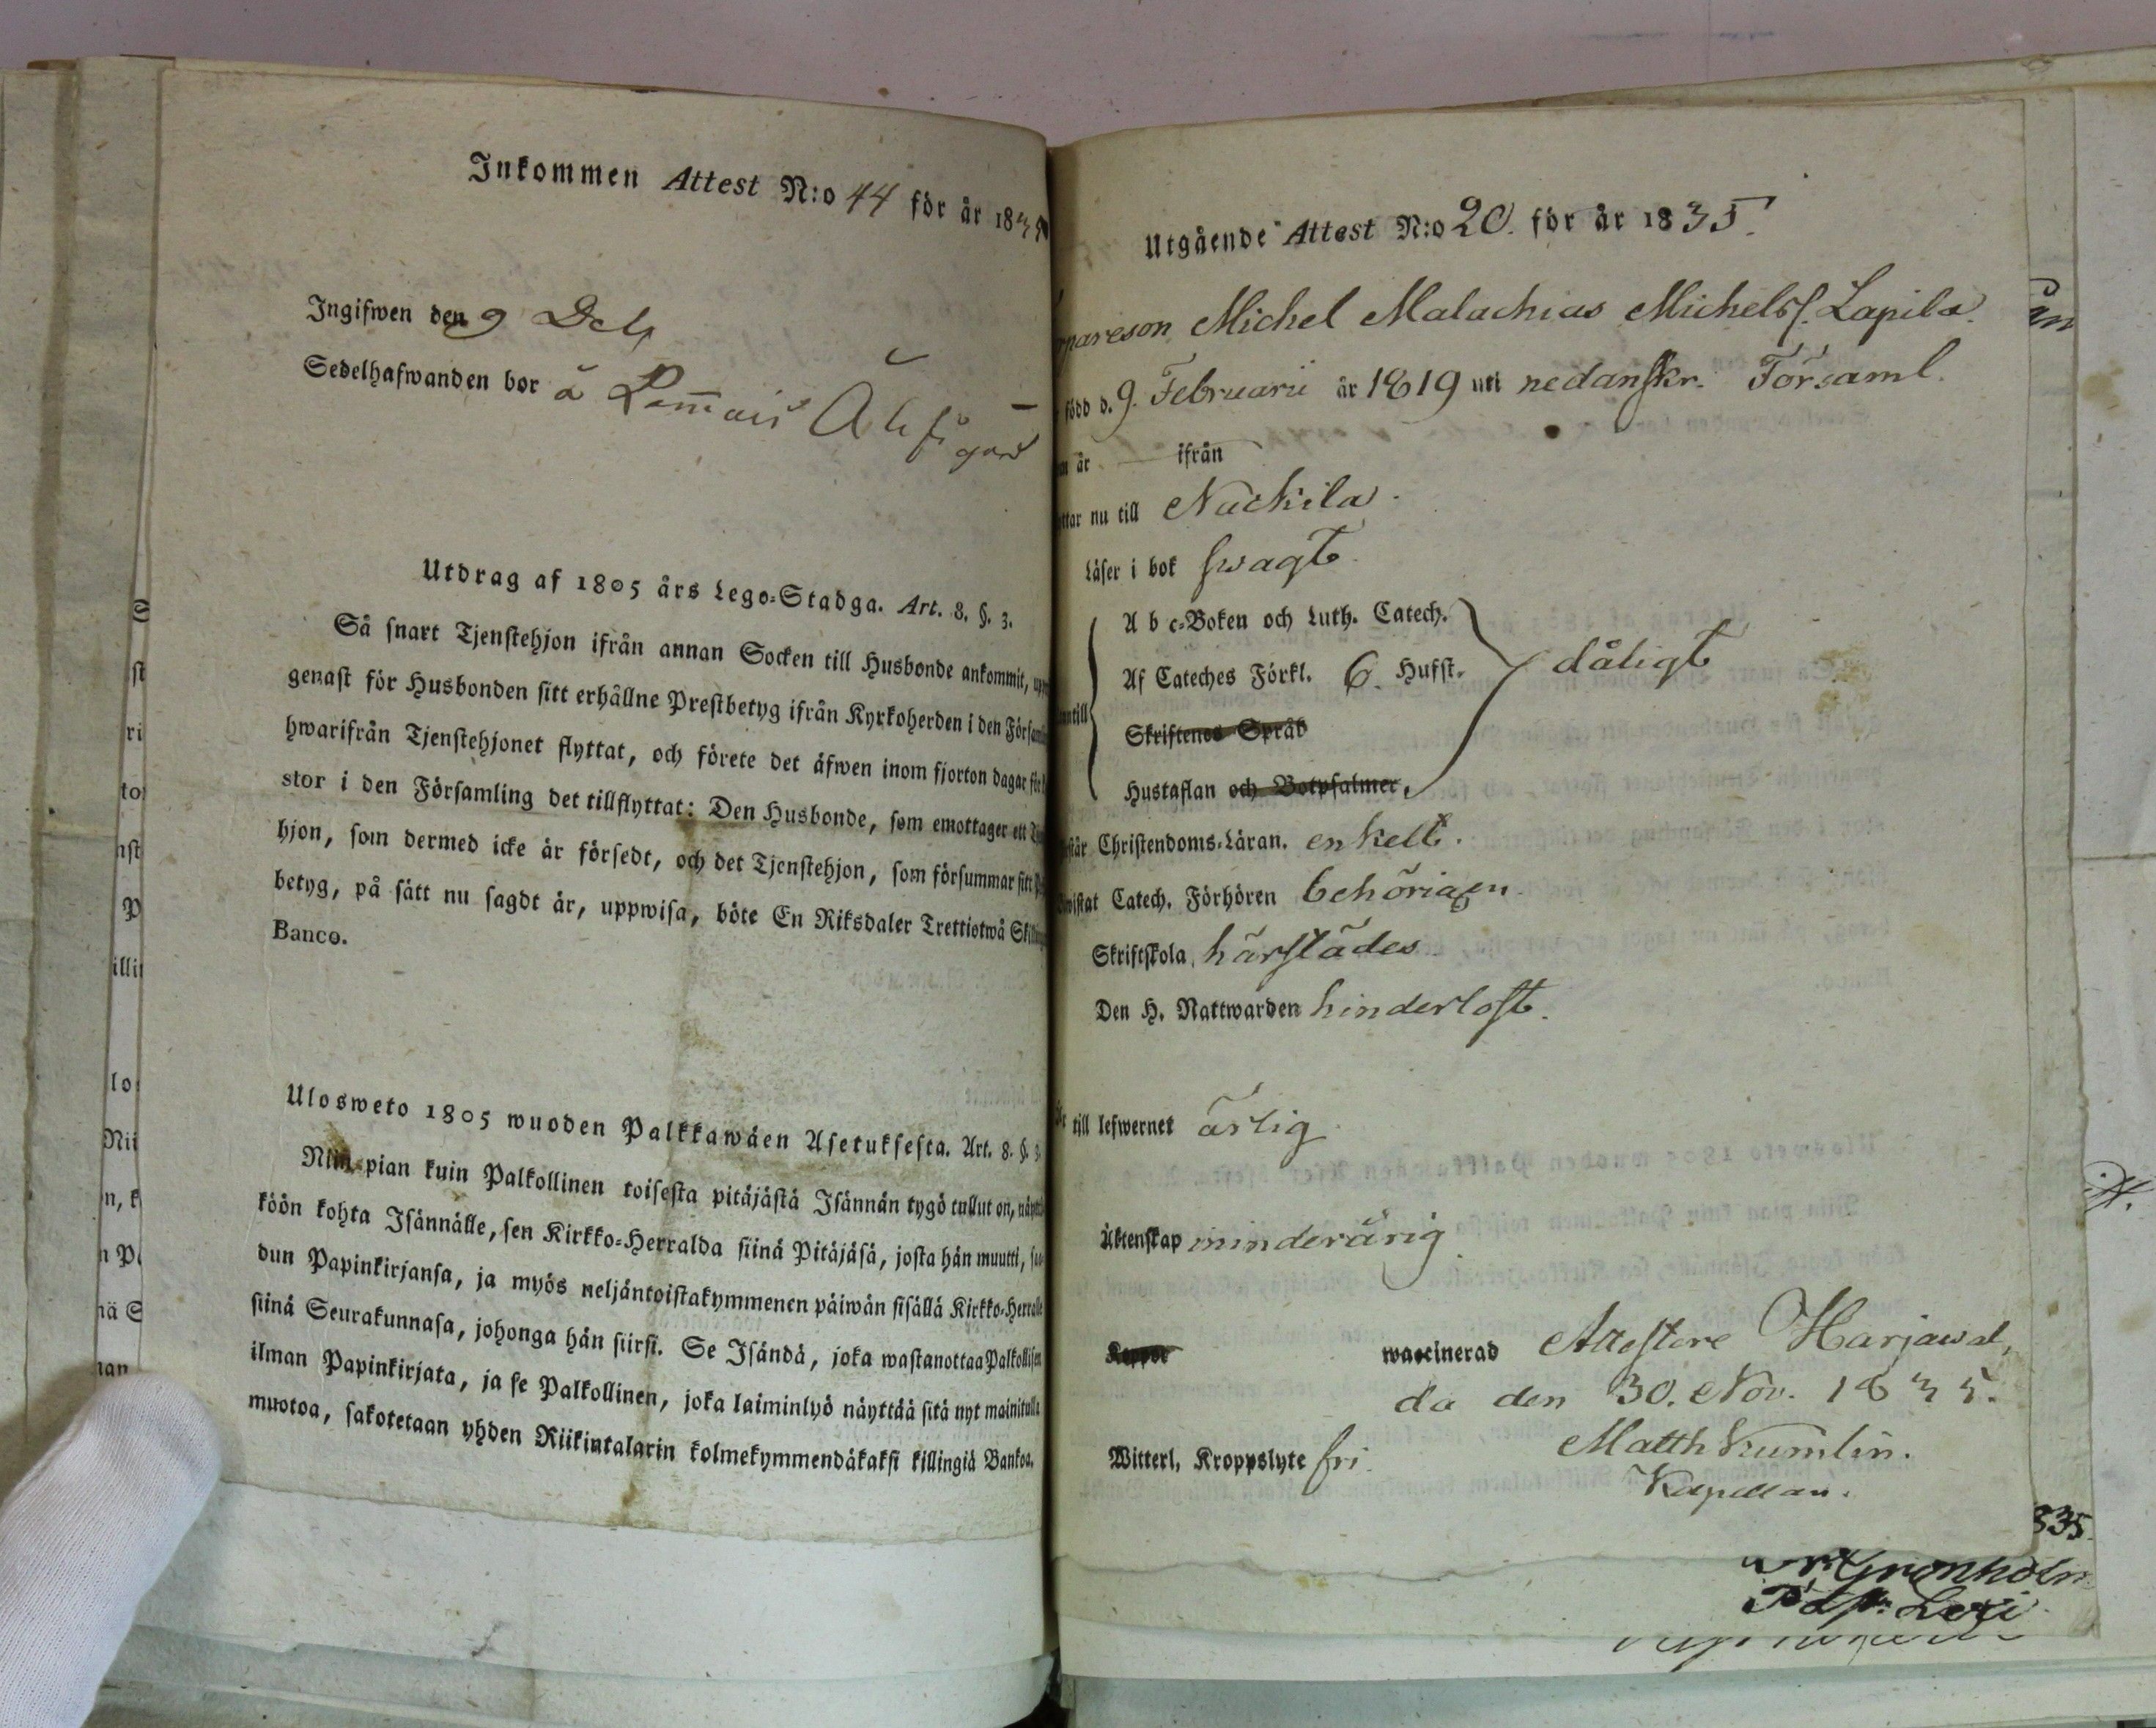 Inkommen Attest N:o 44 för år 183
Ingifwen den 9
Sedelhafwanden bor å
Utdrag af 1805 års Lego-Stadga. Art. 8. §. 3.
Så snart Tjenstehjon ifrån annan Socken till Husbonde ankommit,
genast för Husbonden sitt erhållne Prestbetyg ifrån Kyrkoherden i den
hwarifrån Tjenstehjonet flyttat, och förete det äfwen inom fjorton dagar för
stor i den Församling det tillflyttat: Den Husbonde, som emottager ett
hjon, som dermed icke är försedt, och det Tjenstehjon, som försummar sitt
betyg, på sätt nu sagdt är, uppwisa, böte En Riksdaler Trettiotwå
Banco.
Ulosweto 1805 wuoden Palkkawäen Asetuksesta. Art. 8. §. 3.
Niin pian kuin Palkollinen toisesta pitäjästä Isännän tygö tullut on,
köön kohta Isännälle, sen Kirkko-Herralda siinä Pitäjäsä, josta hän muutti,
dun Papinkirjansa, ja myös neljäntoistakymmenen päiwän sisällä Kirkko-
siinä Seurakunnasa, johonga hän siirsi. Se Isändä, joka wastanottaa
ilman Papinkirjata, ja se Palkollinen, joka laiminlyö näyttää sitä nyt
muotoa, sakotetaan yhden Riikintalarin kolmekymmendäkaksi killingiä Bankoa.
Utgående Attest N:o 20. för år 1835.
Michel Malachias Michelss. Lapila.
född d. 9. Februarii år 1819 uti nedanskr. Församl.
år — ifrån
nu till Nackila.
Läser i bok swagt.
A b c-Boken och Luth. Catech.
Af Cateches Förkl. 6. Hufst. dåligt
Skriftenes Språk
Hustaflan och Botpsalmer.
Christendoms-Läran. enkelt.
Catech. Förhören behörigen.
Skriftskola, härstädes
Den H. Nattwarden hinderlöst.
till lefwernet ärlig
Äktenskap minderårig.
Koppor waccinerad Attestere Harjawal,
da den 30. Nov. 1835.
Matth Kumlin.
Witterl. Kroppslyte fri.
Kapellan.
835.